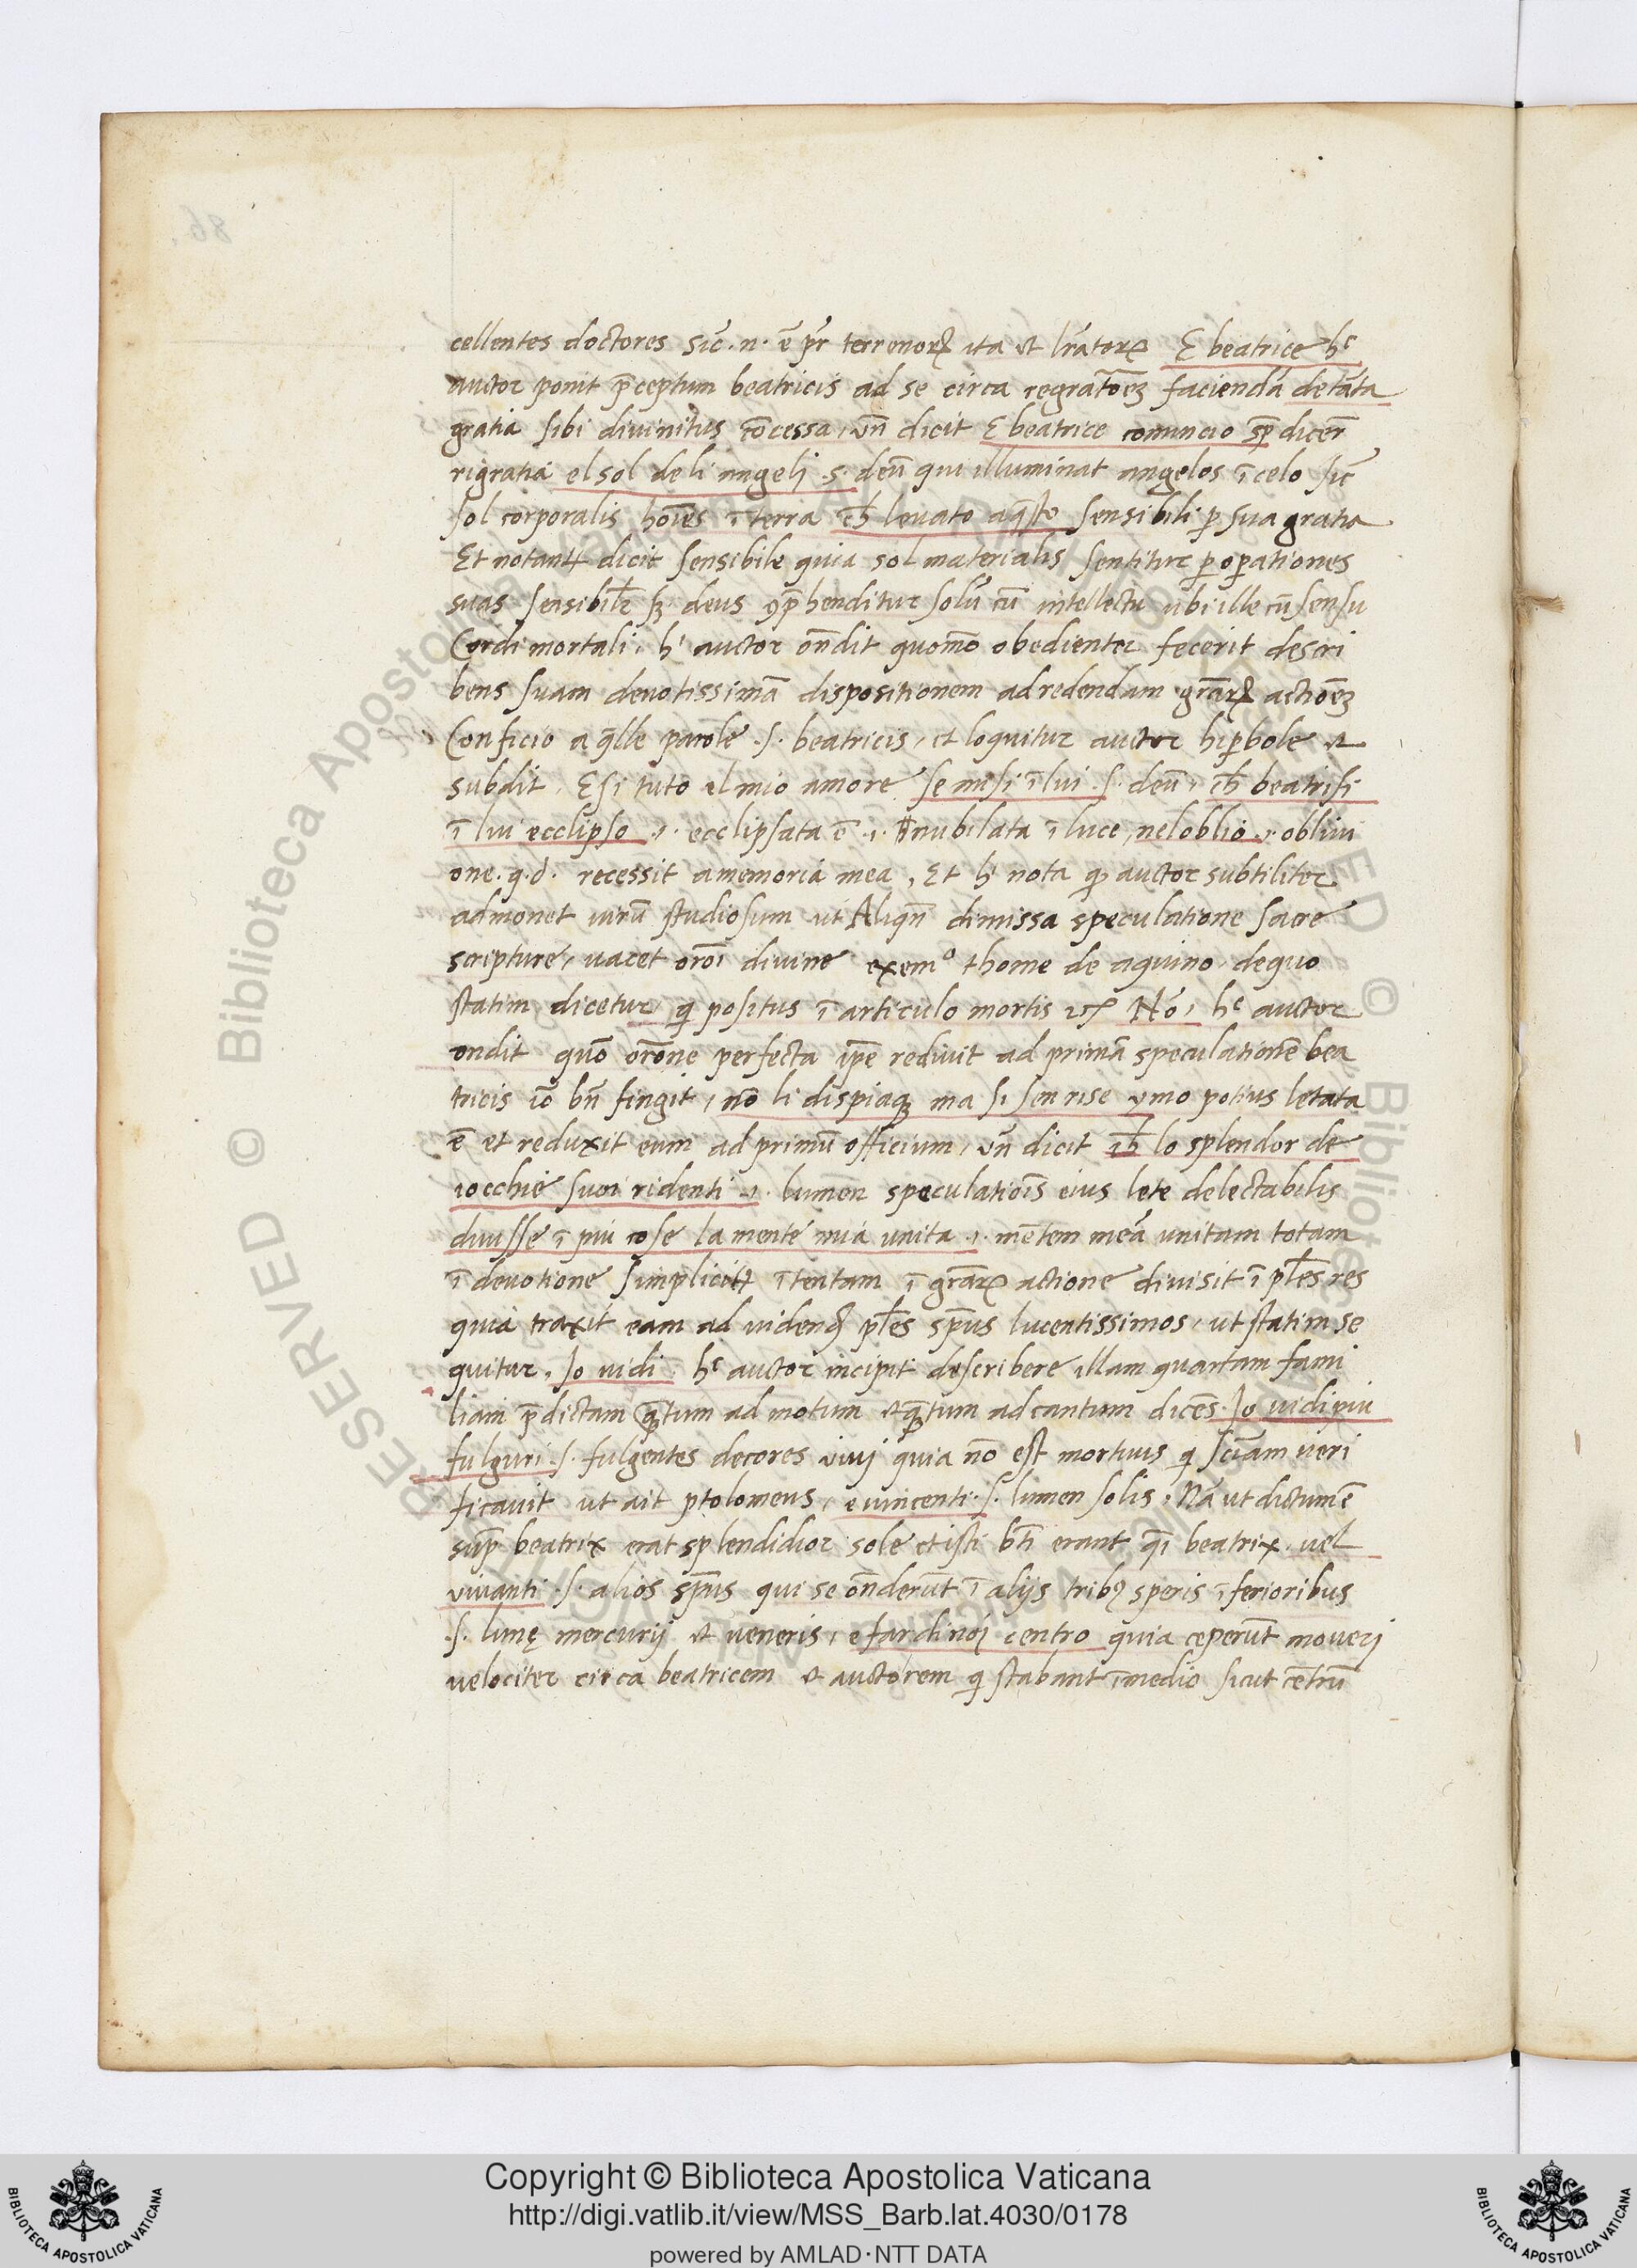 cellentes doctores sic̄ .n. ē pr̄ terrenoꝝ ita et lr̄atoꝝ E beatrice hͨ
auctor ponit p̄ceptum beatricis ad se circa regratōeꝫ faciendā de tāta
gratia sibi divinitus cōcessa, vn̄ dicit E beatrice comincio sp̄ dicēr
rigratia el sol de li angelj .s. deū qui illuminat angelos ī celo sic̄
sol corporalis hoīes ī terra ch̄ levato aq̄sto sensibili ꝑ sua gratia
Et notant̄ dicit sensibile quia sol materialis sentitur ꝑ oꝑationes
suas sensibilr̄ sꝫ deus ꝯp̄henditur solū cū intellectu ubi ille cū sensu
Cor di mortali, hͥ auctor on̄dit quomō obedienter fecerit descri
bens suam devotissimā dispositionem ad redendam gr̄aꝝ actiōeꝫ
Con ficio a q̄lle parole .s. beatricis, et loquitur auctor hiꝑbole et
subdit, E si tuto el mio amore se misi ī lui .s. deū, ch̄ beatrisi
ī lui ecclipso .i. ecclipsata ē .i. nubilata ī luce, nel oblio .i. oblivi
one .q.d. recessit a memoria mea, Et hͥ nota ꝙ auctor subtiliter
admonet virū studiosum ut Aliqn̄ dimissa speculatione sacre
scripture, vacet orōi divine exemᵒ thome de aquino, de quo
statim dicetur, qͥ positus ī articulo mortis etc Nō, hͨ auctor
ondit quō orōne perfecta ip̄e redivit ad primā speculationē bea
tricis iō bn̄ fingit, nō li dispiaqꝫ ma si sen rise ymo potius letata
ē et reduxit eum ad primū officium, vn̄ dicit ch̄ lo splendor de
iocchie suoi ridenti .i. lumen speculatiōis eius lete delectabilis
divisse ī piu cose la mente mia unita .i. mētem meā unitam totam
ī devotione simplicit̄ ītentam ī gr̄aꝝ actione divisit ī pl̄es res
quia traxit eam ad videnꝺ pl̄es sp̄us lucentissimos, ut statim se
quitur, Io vidi, hͨ auctor incipit describere illam quartam fami
liam p̄dictam q̄tum ad motum et q̄tum ad cantum dicēs. Io vidi piu
fulguri .s. fulgentes decores vivj quia nō est mortuus qͥ sciam̄ veri
ficavit ut ait ptolomeus, e vincenti .s. lumen solis, Nā ut dictum ē
sup̄ beatrix erat splendidior sole et isti bt̄i erant q̄i beatrix, vel
vivanti .s. alios sp̄us qui se on̄derūt ī alijs tribꝰ speris īferioribus
.s. lunę mercurij et veneris, e far di noj centro quia ceperūt moverj
velociter circa beatricem et auctorem qͥ stabant ī medio sicut cētrū
Copyright © Biblioteca Apostolica Vaticana
http://digi.vatlib.it/view/MSS_Barb.lat.4030/0178
powered by AMLAD·NTT DATA
BIBLIOTECA APOSTOLICA VATICANA
BIBLIOTECA APOSTOLICA VATICANA